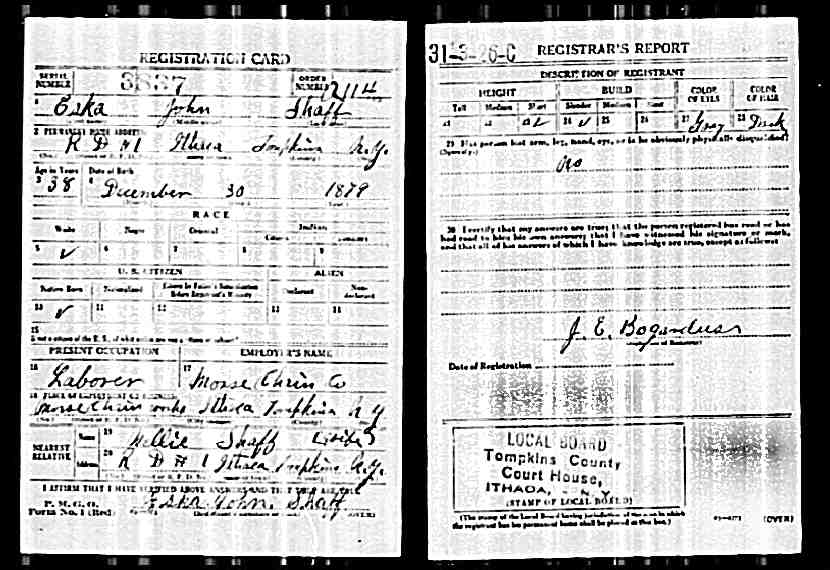 REGISTRATION CARD
SERIAL NUMBER 3837 ORDER NUMBER 2114
1 Eska John Shaff
2 PERMANENT HOME ADDRESS
R D #1 Ithaca Tompkins N.Y.
Age in Years Date of Birth
3 38 4 December 30 1879
RACE
White Negro Oriental Indian
5 ✓ 6 7 8 9
U. S. CITIZEN ALIEN
Native Born Naturalized Declared Non-declarant
10 ✓ 11 12 13 14
15
PRESENT OCCUPATION EMPLOYER'S NAME
16 Laborer 17 Morse Chain Co
18 PLACE OF EMPLOYMENT OR BUSINESS
Morse Chain works Ithaca Tompkins N Y
NEAREST RELATIVE
Name 19 Nellie Shaff
Address 20 R D # 1 Ithaca Tompkins N.Y.
I AFFIRM THAT I HAVE VERIFIED ABOVE ANSWERS AND THAT THEY ARE TRUE
P. M. G. O.
Form No. 1 (Red) Eska John Shaff (OVER)
31-3-26-C REGISTRAR'S REPORT
DESCRIPTION OF REGISTRANT
HEIGHT BUILD COLOR OF EYES COLOR OF HAIR
Tall Medium Short Slender Medium Stout
21 22 23 ✓ 24 ✓ 25 26 27 Gray 28 Dark
29 Has person lost arm, leg, hand, eye, or is he obviously physically disqualified?
(Specify.)
No
30 I certify that my answers are true; that the person registered has read or has
had read to him his own answers; that I have witnessed his signature or mark,
and that all of his answers of which I have knowledge are true, except as follows:
J. E. Bogardus
Date of Registration
LOCAL BOARD
Tompkins County
Court House,
ITHACA, N. Y.
(STAMP OF LOCAL BOARD)
(The stamp of the Local Board having jurisdiction of the area in which
the registrant has his permanent home shall be placed in this box.)
(OVER)